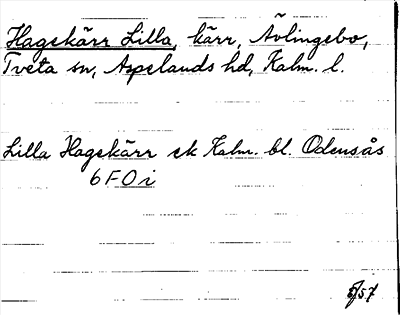 Hagekärr Lilla, kärr, Ävlingebo,
Tveta sn, Aspelands hd, Kalm. l.
Lilla Hagekärr ek Kalm. bl. Odensås
6 F O i
5/57